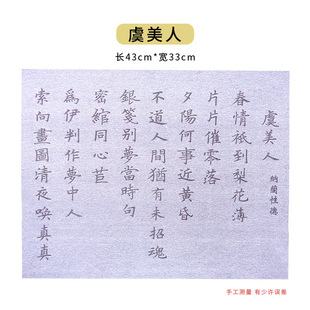 虞美人
长43cm*宽33cm
虞美人
納蘭性德
春情祇到梨花薄
片片催零落
夕陽何事近黃昏
不道人間猶有未招魂
銀箋別夢當時句
密綰同心苣
爲伊判作夢中人
索向畫圖清夜喚真真
手工测量 有少许误差